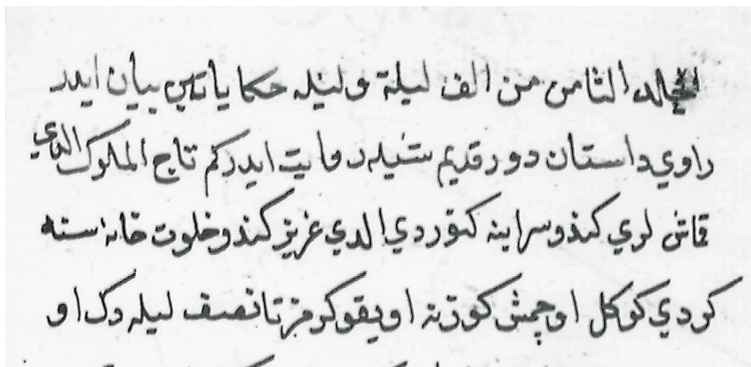 المجلد الثامن من الف ليلة وليله حكاياتين بيان ايدر
راوي داستان دور قديم شيله روايت ايدركم تاج الملوك الدي
قماش لري كندو سراينه كتوردي الدي عزيز كندو خلوت خانه سنه
كردي كوكل اوچمش كوزنه اويقو كرمز تا نصف ليله دك او